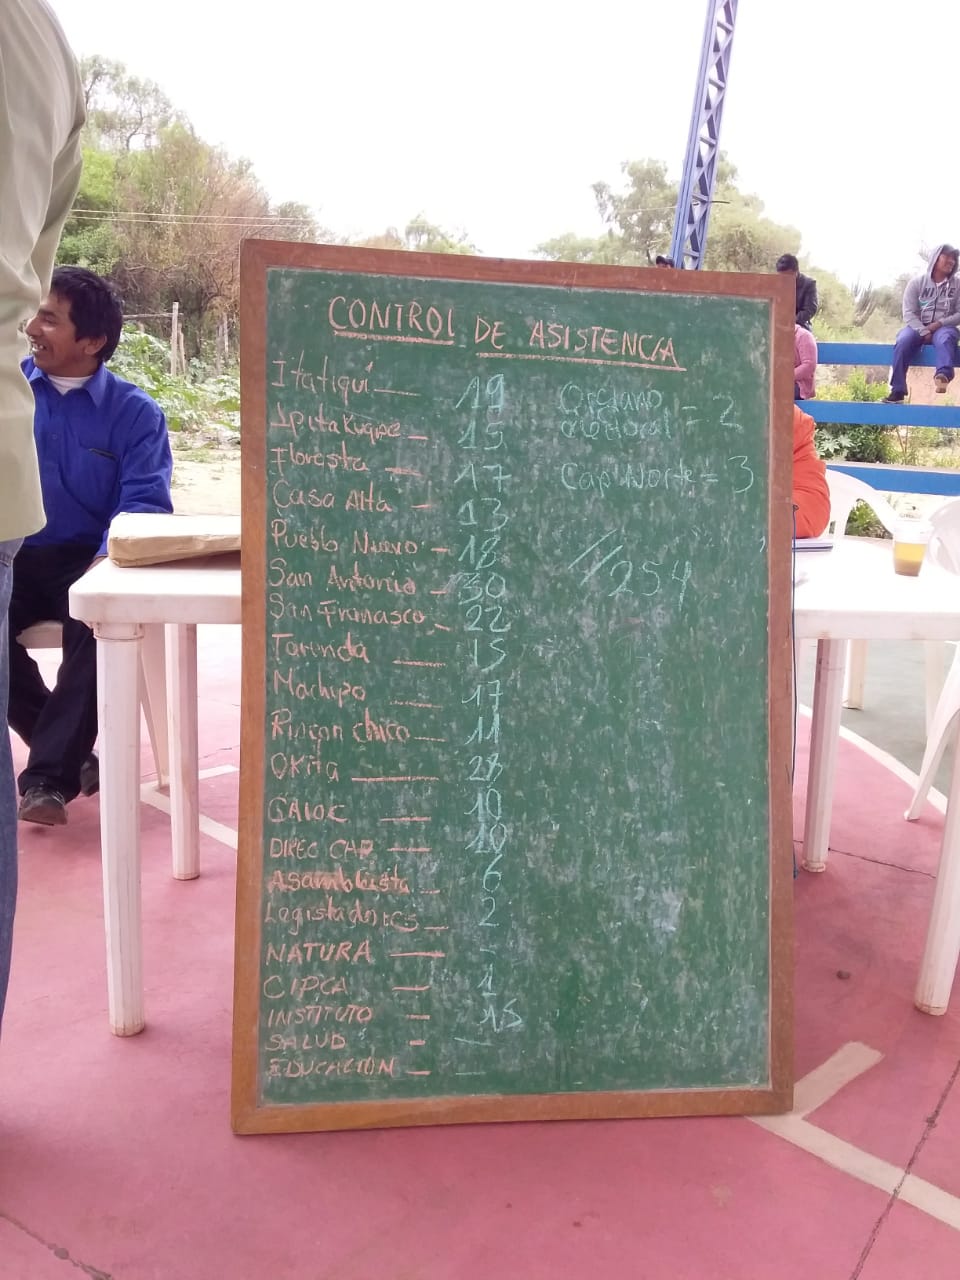 CONTROL DE ASISTENCIA
Itatiqui — 19
Ipitakuape — 15
Floresta — 17
Casa Alta — 13
Pueblo Nuevo — 18
San Antonio — 30
San Francisco — 22
Tarenda — 15
Machipo — 17
Rincon chico — 11
OKita — 28
GAIOC — 10
DIREC CAP — 10
Asambleista — 6
Legisladores — 2
NATURA — -
CIPCA — 1
INSTITUTO — 15
SALUD - —
EDUCACION — —
Organo
electoral = 2
Cap Norte = 3
//254
NIKE